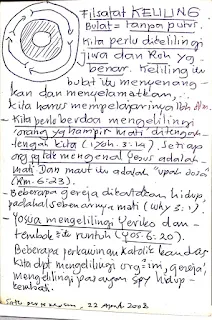 Filsafat KELILING
Bulat = tanpa putus
Kita perlu dikelilingi
jiwa dan Roh yg
benar. Keliling itu
bulat itu menyenang-
kan dan menyelamatkan
kita harus mempelajarinya
- Kita perlu berdoa mengelilingi
orang yg hampir mati ditengah
tengah kita (1Yoh. 3:14). Setiap
org yg tdk mengenal Yesus adalah
mati. Dan maut itu adalah "upah dosa"
(Rm. 6:23).
- Beberapa gereja dikatakan hidup,
padahal sebenarnya mati (Why 3:1)
- Yosua mengelilingi Yerikho dan
tembok itu runtuh (Yos. 6:20).
Beberapa perkawinan Katolik kandas
Kita dpt mengelilingi org ini, gereja,
mengelilingi pasangan spy hidup
kembali.
22 April 2008